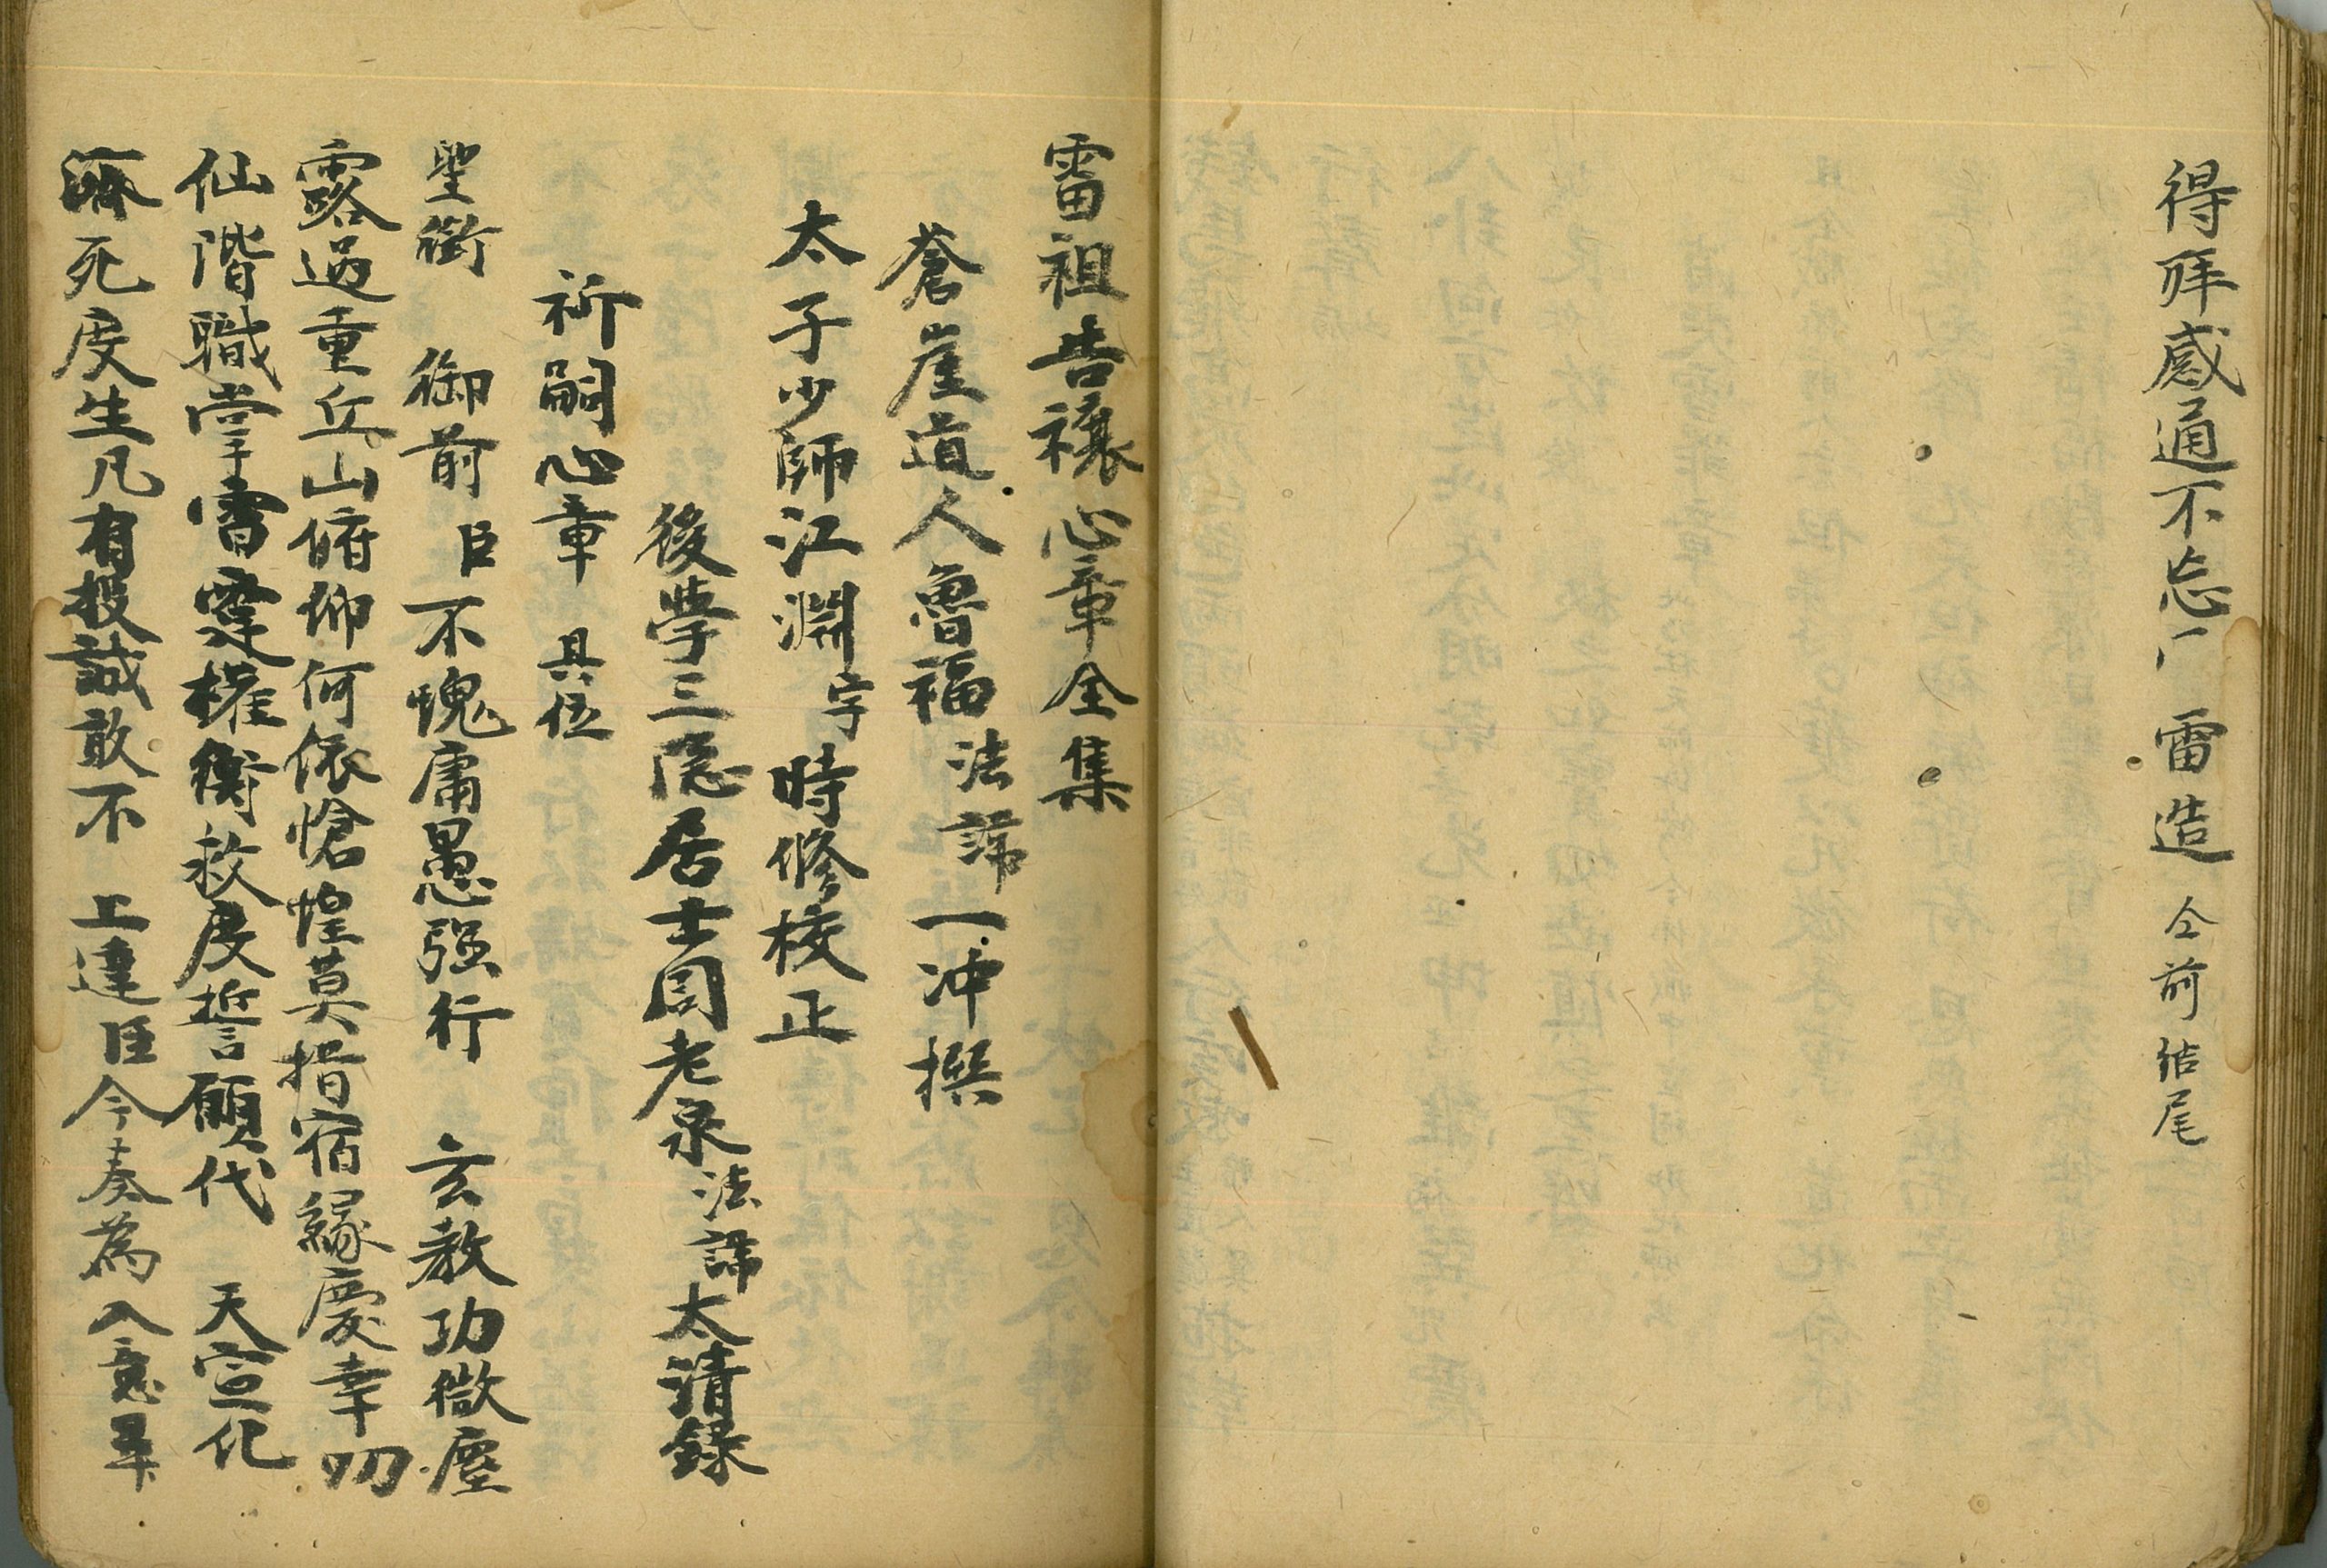 得拜感通不忘 雷造 仝前結尾
雷祖告禳心章全集
蒼崖道人魯福法諱一冲撰
太子少師江淵字時修校正
後學三隱居士周老泉法諱太清錄
祈嗣心章 具位
聖銜 御前 臣不愧庸愚强行 玄教功微塵
露過重丘山俯仰何依愴惶莫措宿緣慶幸叨
仙階職掌雷霆權衡救度誓願代 天宣化
濟死度生凡有投誠敢不 上達臣今奏為入意畢